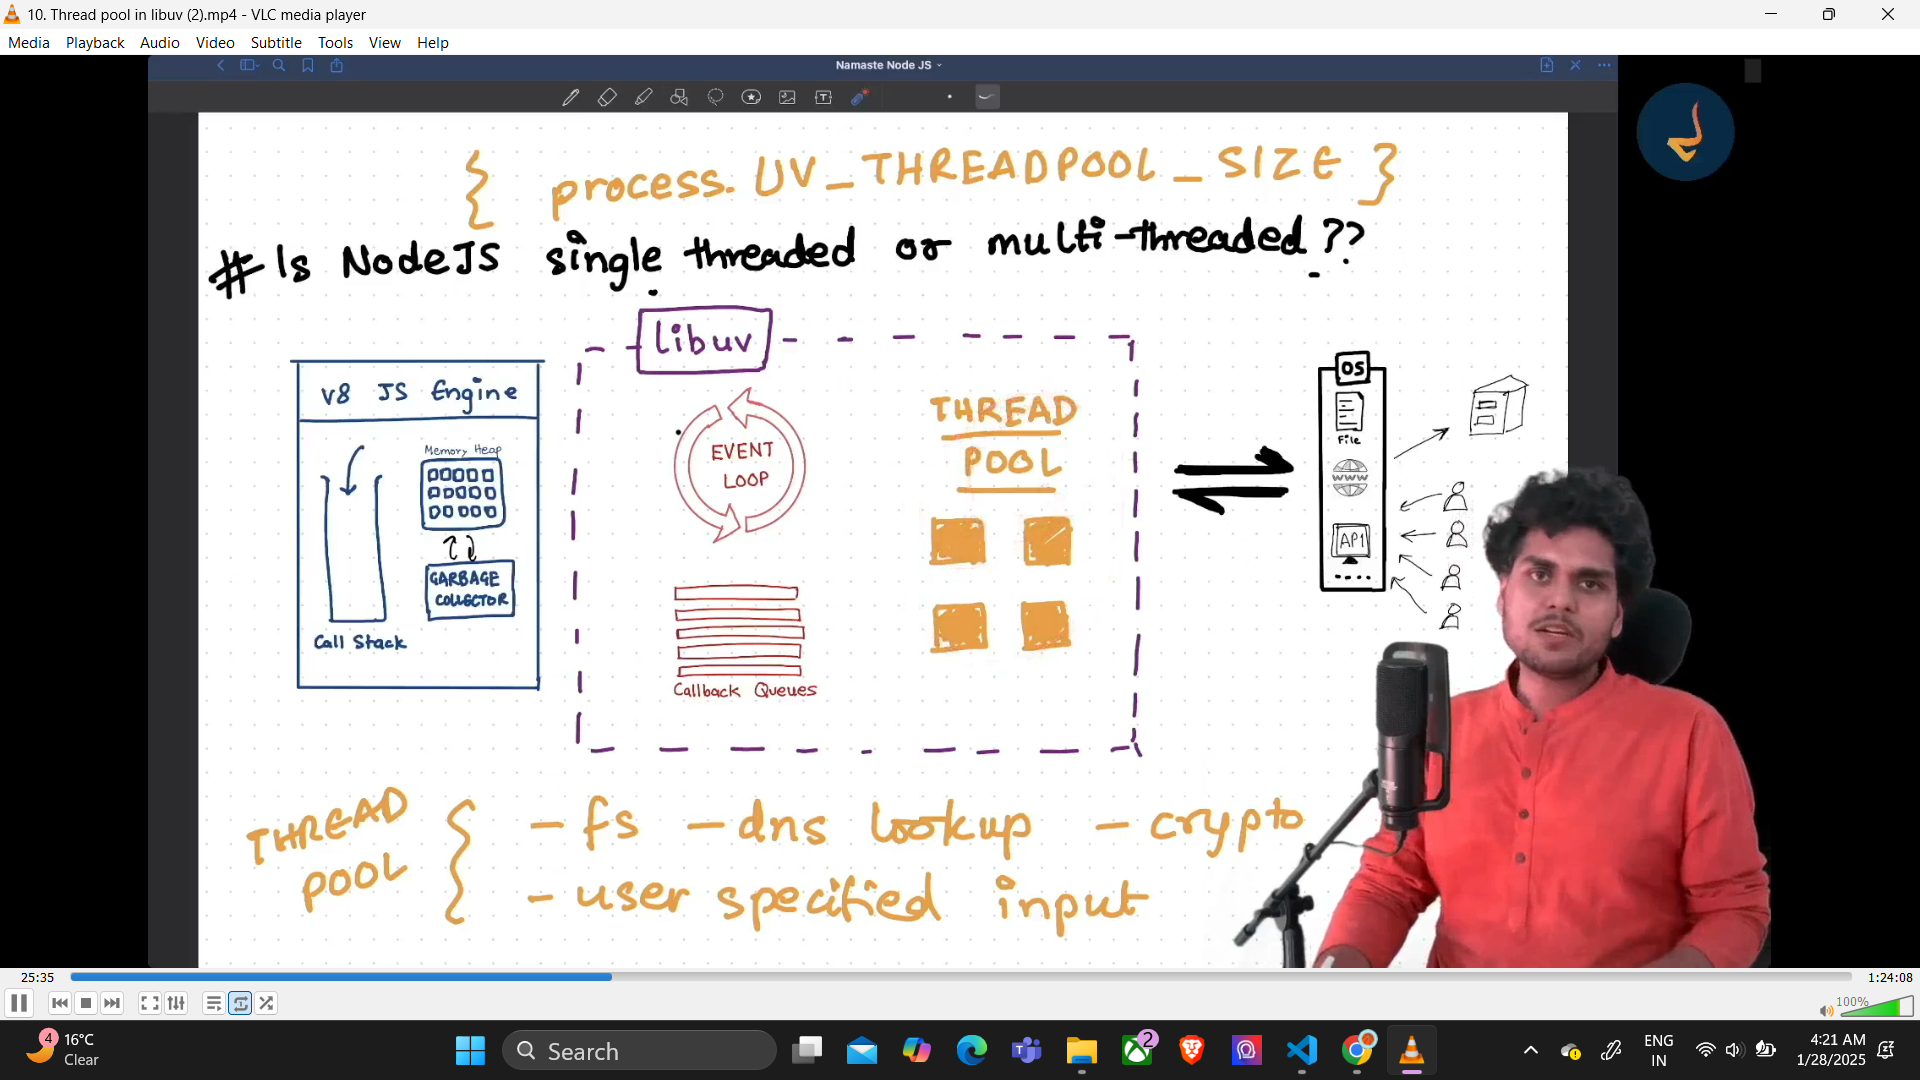 10. Thread pool in libuv (2).mp4 - VLC media player
Media Playback Audio Video Subtitle Tools View Help
Namaste Node JS
{ process. UV_THREADPOOL_SIZE }
# Is NodeJS single threaded or multi-threaded ??
libuv
v8 JS Engine
Memory Heap
GARBAGE
COLLECTOR
Call Stack
EVENT
LOOP
Callback Queues
THREAD
POOL
OS
File
WWW
API
THREAD
POOL
{ - fs - dns lookup - crypto
- user specified input
25:35
1:24:08
100%
4
16°C
Clear
Search
2
ENG
IN
4:21 AM
1/28/2025